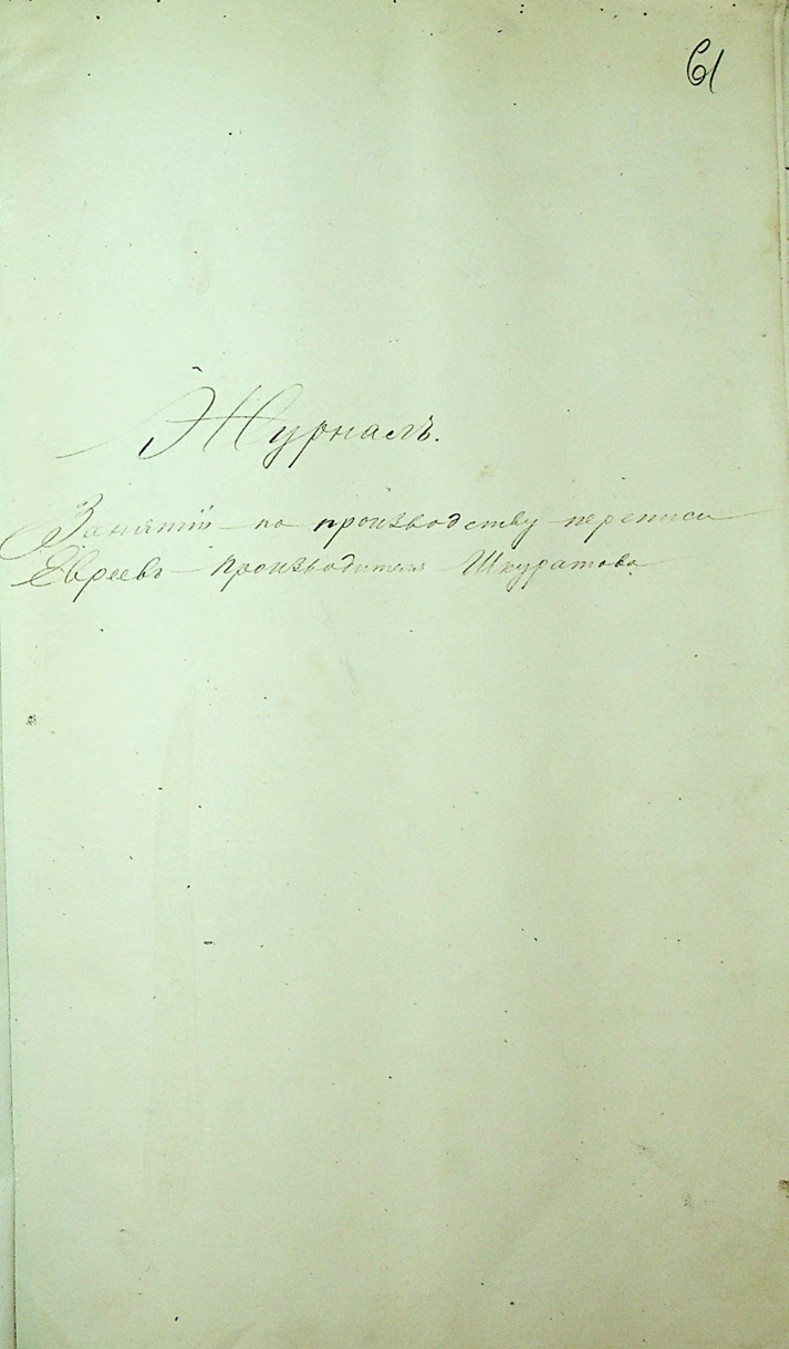 61
Журналъ.
Занятій по производству переписи
Евреевъ Производителя Шкуратова